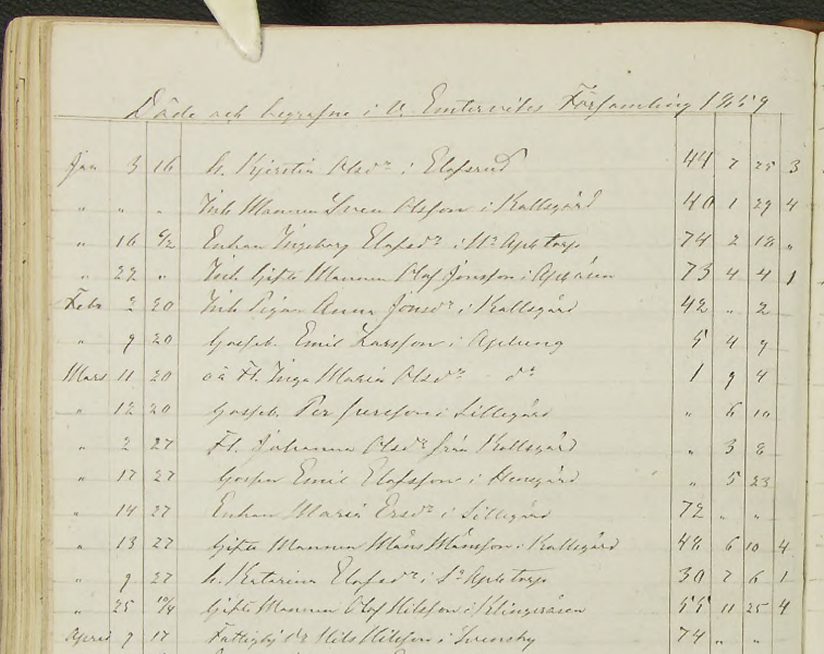 Döde och begrafne i V. Emterviks Församling 1859
Jan 3 16 h. Kjerstin Olsdr i Elofsrud 44 7 25 3
" " " Inh Mannen Sven Olsson i Kallsgård 40 1 29 4
" 16 6/2 Enkan Ingeborg Elofsdr i Apletorp 74 2 18 "
" 22 " Inh Gifte Mannen Olof Jönsson i 73 4 4 1
Febr 2 20 Inh Pigan Anna Jonsdr i Kallsgård 42 " 2
" 9 20 Gosseb. Emil Larsson i 5 4 9
Mars 11 20 Fl. Inga Maria Olsdr do 1 9 4
" 12 20 Gosseb. Per i Lillegård " 6 10
" 2 27 Fl. Johanna Olsdr från Kallsgård " 3 8
" 17 27 Gossen Emil Elofsson i " 5 23
" 14 27 Enkan Maria Ersdr i Lillegård 72 " "
" 13 27 Gifte Mannen Måns Månsson i Kallsgård 48 6 10 4
" 9 27 h. Katarina Elofsdr i Apletorp 30 7 6 1
" 25 10/4 Gifte Mannen Olof Nilsson i Klingeråsen 55 11 25 4
April 9 17 Nils Nilsson i Svensby 74 " "